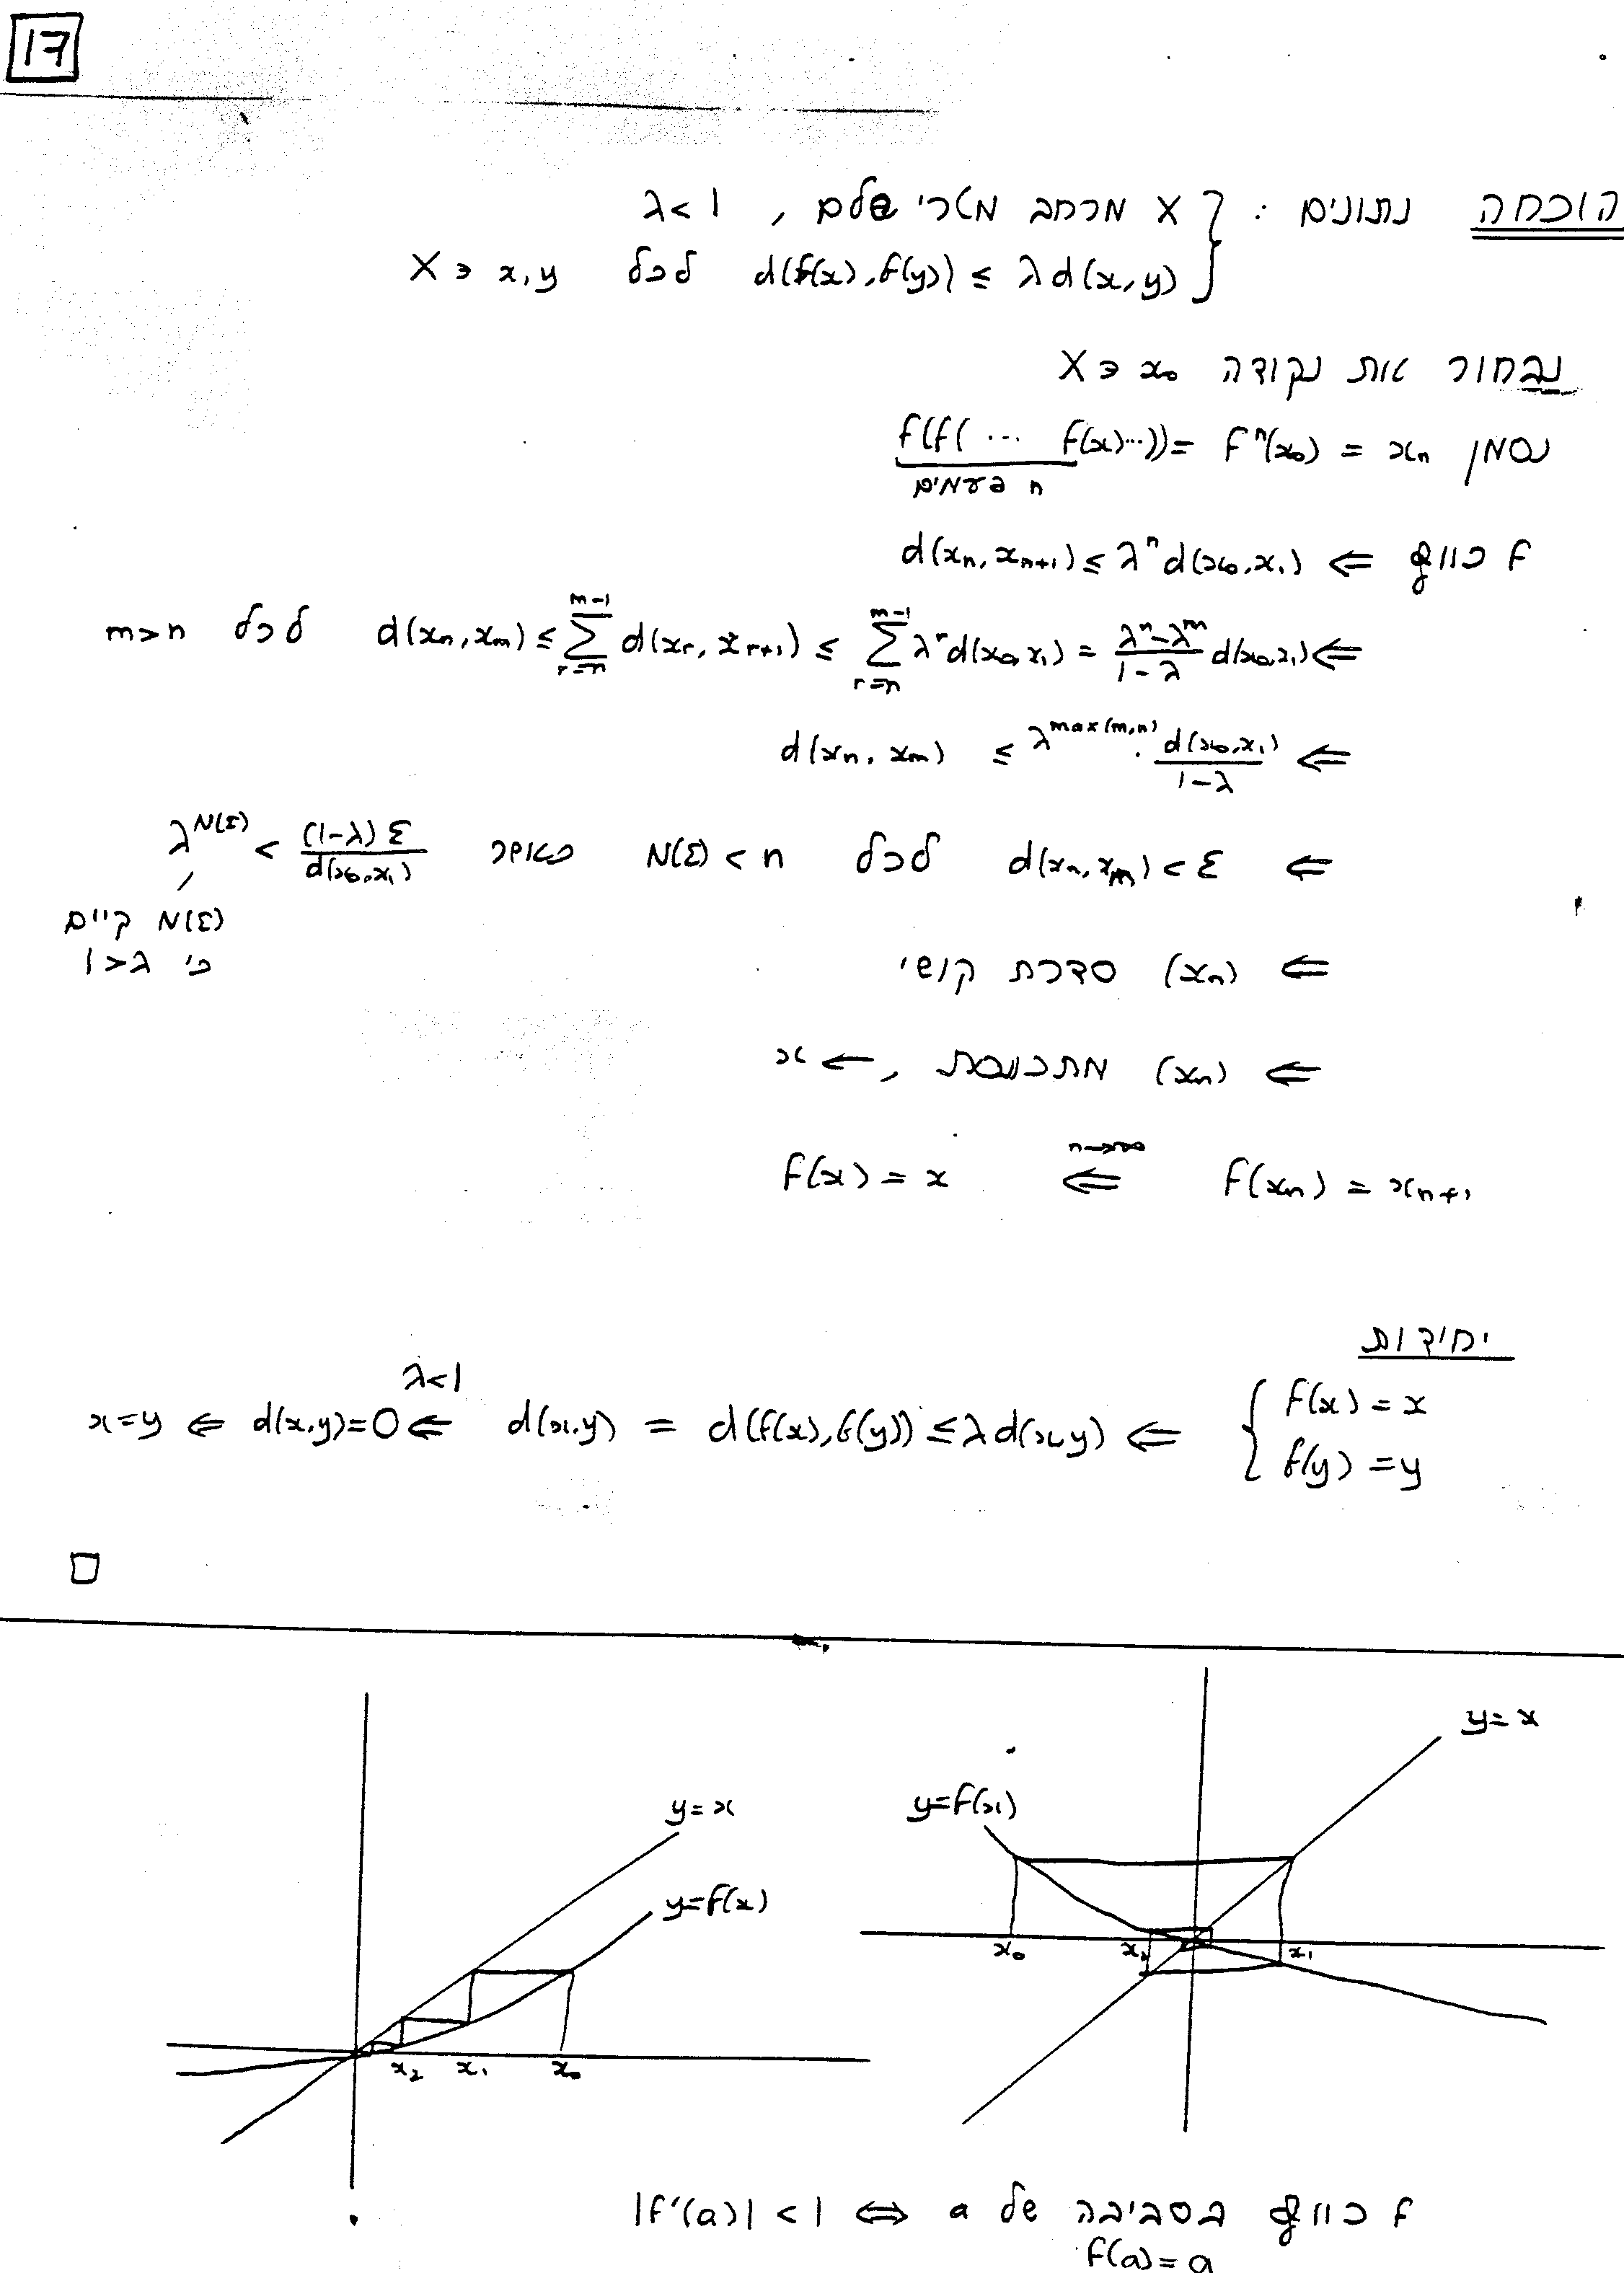 17
הוכחה נתונים : { X מרחב מטרי שלם , λ<1
d(f(x),f(y)) ≤ λ d(x,y) לכל X ∋ x,y
נבחור את נקודה X ∋ x₀
נסמן f(f( ... f(x)...)) = fⁿ(x₀) = xₙ
n פעמים
f כווץ ⇐ d(xₙ, xₙ₊₁) ≤ λⁿ d(x₀,x₁)
⇐ d(xₙ,xₘ) ≤ ∑_{r=n}^{m-1} d(x_r, x_{r+1}) ≤ ∑_{r=n}^{m-1} λ^r d(x₀,x₁) = \frac{λⁿ-λ^m}{1-λ} d(x₀,x₁) לכל m>n
⇐ d(xₙ, xₘ) ≤ λ^{max(m,n)} · \frac{d(x₀,x₁)}{1-λ}
⇐ d(xₙ,xₘ) < ε לכל N(ε) < n כאשר λ^{N(ε)} < \frac{(1-λ) ε}{d(x₀,x₁)}
N(ε) קיים
כי λ<1
⇐ (xₙ) סדרת קושי
⇐ (xₙ) מתכנסת , ← x
f(xₙ) = xₙ₊₁ ⇐ n→∞ f(x) = x
יחידות
{ f(x) = x
f(y) = y
⇐ d(x,y) = d(f(x),f(y)) ≤ λ d(x,y) ⇐ λ<1 d(x,y)=0 ⇐ x=y
□
y=x
y=f(x)
x₀
x₂
x₁
y=x
y=f(x)
x₂
x₁
x₀
f כווץ בסביבה של a ⇔ |f'(a)| < 1
f(a)=a